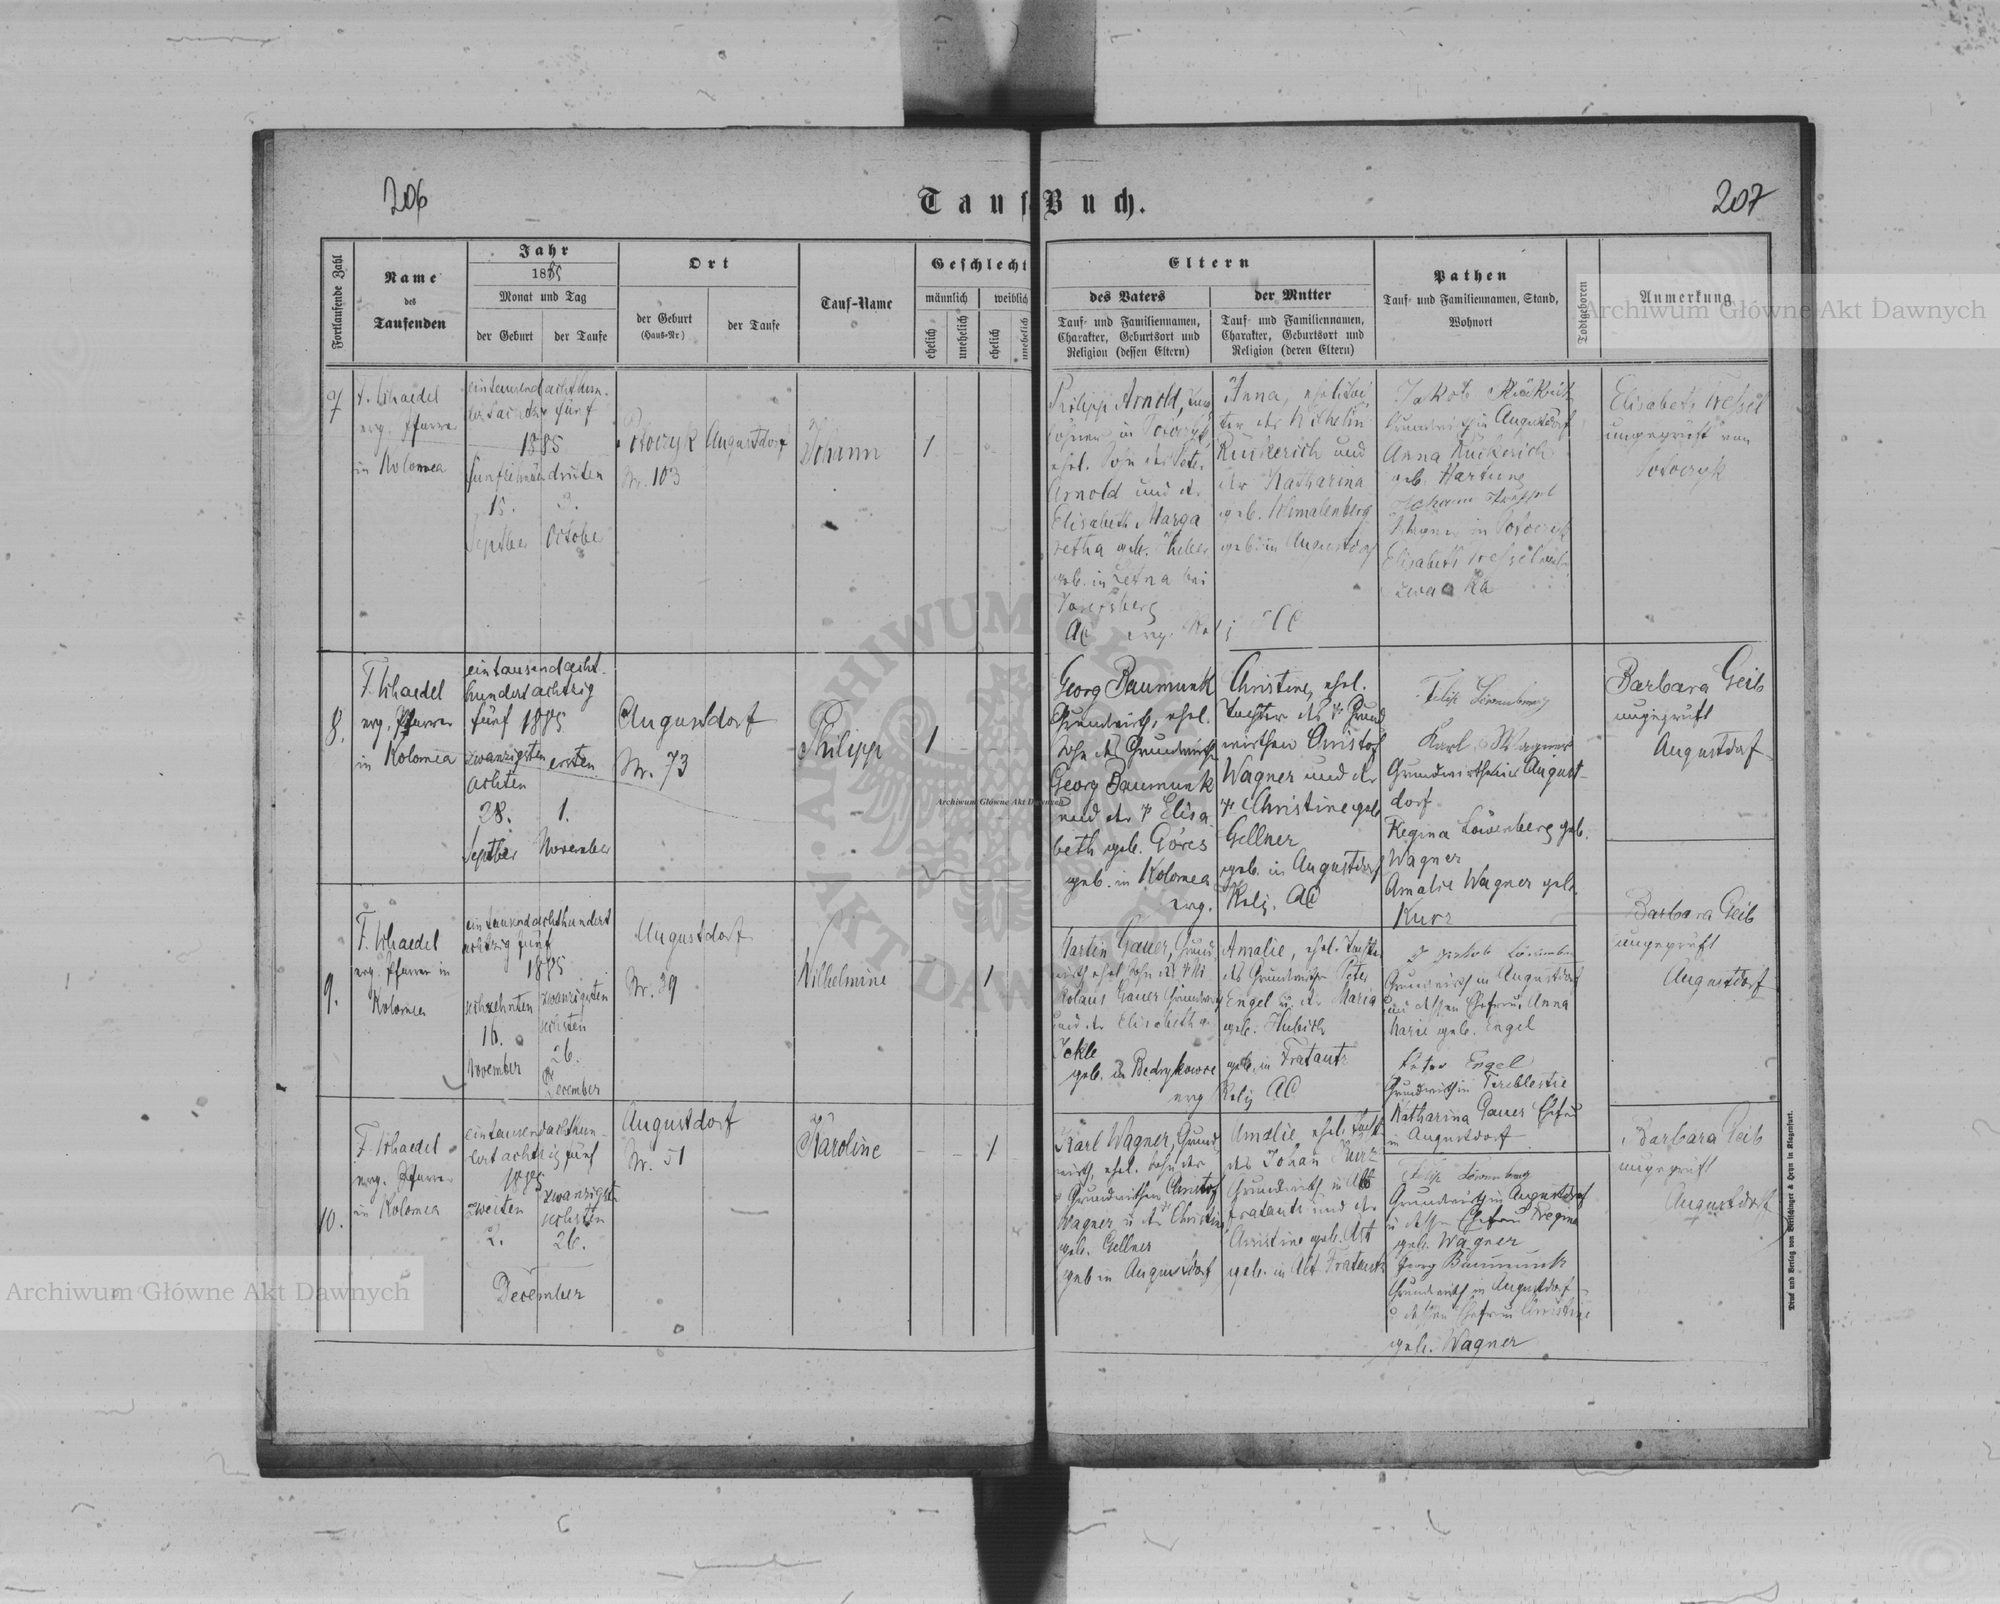 206
207
Tauf-Buch.
Fortlaufende Zahl
Name
des
Taufenden
Jahr
1885
Monat und Tag
der Geburt
der Taufe
Ort
der Geburt
(Haus-Nr.)
der Taufe
Tauf-Name
Geschlecht
männlich
weiblich
ehelich
unehelich
ehelich
unehelich
Eltern
des Vaters
der Mutter
Tauf- und Familiennamen,
Charakter, Geburtsort und
Religion (dessen Eltern)
Tauf- und Familiennamen,
Charakter, Geburtsort und
Religion (deren Eltern)
Pathen
Tauf- und Familiennamen, Stand,
Wohnort
Todtgeboren
Anmerkung
7
F. Schaedel
evg. Pfarrer
in Kolomea
eintausendachthun-
1885
dritten
15.
3.
September
October
Potoczyk
Nr. 103
Augustdorf
Johann
1
Philipp Arnold,
in Potoczyk
ehel. Sohn des Peter
Arnold und der
Elisabeth Marga
retha geb.
geb. in Letna bei
Josefsberg
AC evg. Rel
Anna, eheliche
ter des Wilhelm
Rückerich und
der Katharina
geb.
geb. in Augustdorf
AC
Jakob
Grundwirth in Augustdorf
Anna Rückerich
geb. Hartung
Johann
in Potoczyk
Elisabeth Tressel
Elisabeth Tressel
ungeprüft von
Potoczyk
8.
F. Schaedel
evg. Pfarrer
in Kolomea
eintausendacht-
hundertachtzig
fünf 1885
zwanzigsten
achten
ersten
28.
1.
September
November
Augustdorf
Nr. 73
Philipp
1
Georg Baumunk
Grundwirth, ehel.
Sohn des Grundwirth
Georg Baumunk
und der Elisa
beth geb. Göres
geb. in Kolomea
evg.
Christine, ehel.
Tochter des Grund
wirthen Christof
Wagner und der
Christine geb
Gellner
geb. in Augustdorf
Relig. AC
Filip Löwenberg
Karl Wagner
Grundwirthe in August-
dorf
Regina Löwenberg geb.
Wagner
Amalie Wagner geb.
Kurz
Barbara Geib
ungeprüft
Augustdorf
9.
F. Schaedel
evg. Pfarrer in
Kolomea
eintausendachthundert
achtzig fünf
1885
sechzehnten
zwanzigsten
sechsten
16.
26.
November
December
Augustdorf
Nr. 39
Wilhelmine
1
Martin Gauer, Grund
wirth ehel. Sohn des Ni
kolaus Gauer Grundwirth
und der Elisabeth g.
Jekle
geb. in
evg
Amalie, ehel. Tochter
des Grundwirthe Peter
Engel u. der Maria
geb. Hubich
geb. in Fratautz
Relig AC
Jakob Löwenberg
Grundwirth in Augustdorf
und dessen Ehefrau Anna
Marie geb. Engel
Peter Engel
Grundwirth in Tereblestie
Katharina Gauer Ehefrau
in Augustdorf
Barbara Geib
ungeprüft
Augustdorf
10.
F. Schaedel
evg. Pfarrer
in Kolomea
eintausendachthun-
dertachtzigfünf
1885
zweiten
zwanzigsten
sechsten
2.
26.
December
Augustdorf
Nr. 51
Karoline
1
Karl Wagner, Grund
wirth, ehel. Sohn der
Grundwirthen Christof
Wagner u der Christine
geb. Gellner
geb in Augustdorf
Amalie ehel. Tocht
des Johan Kurz
Grundwirth in Alt
fratautz und der
Christine geb. Ast
geb. in Alt Fratautz
Filip Löwenberg
Grundwirth in Augustdorf
u dessen Ehefrau Regina
geb. Wagner
Georg Baumunk
Grundwirth in Augustdorf
u dessen Ehefrau Christine
geb. Wagner
Barbara Geib
ungeprüft
Augustdorf
Archiwum Główne Akt Dawnych
Archiwum Główne Akt Dawnych
Archiwum Główne Akt Dawnych